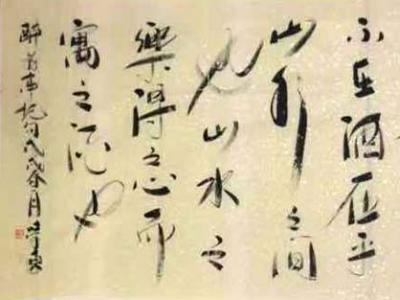 不在酒在乎
山水之間
也山水之
樂得之心而
寓之酒也
醉翁亭記句戊戌